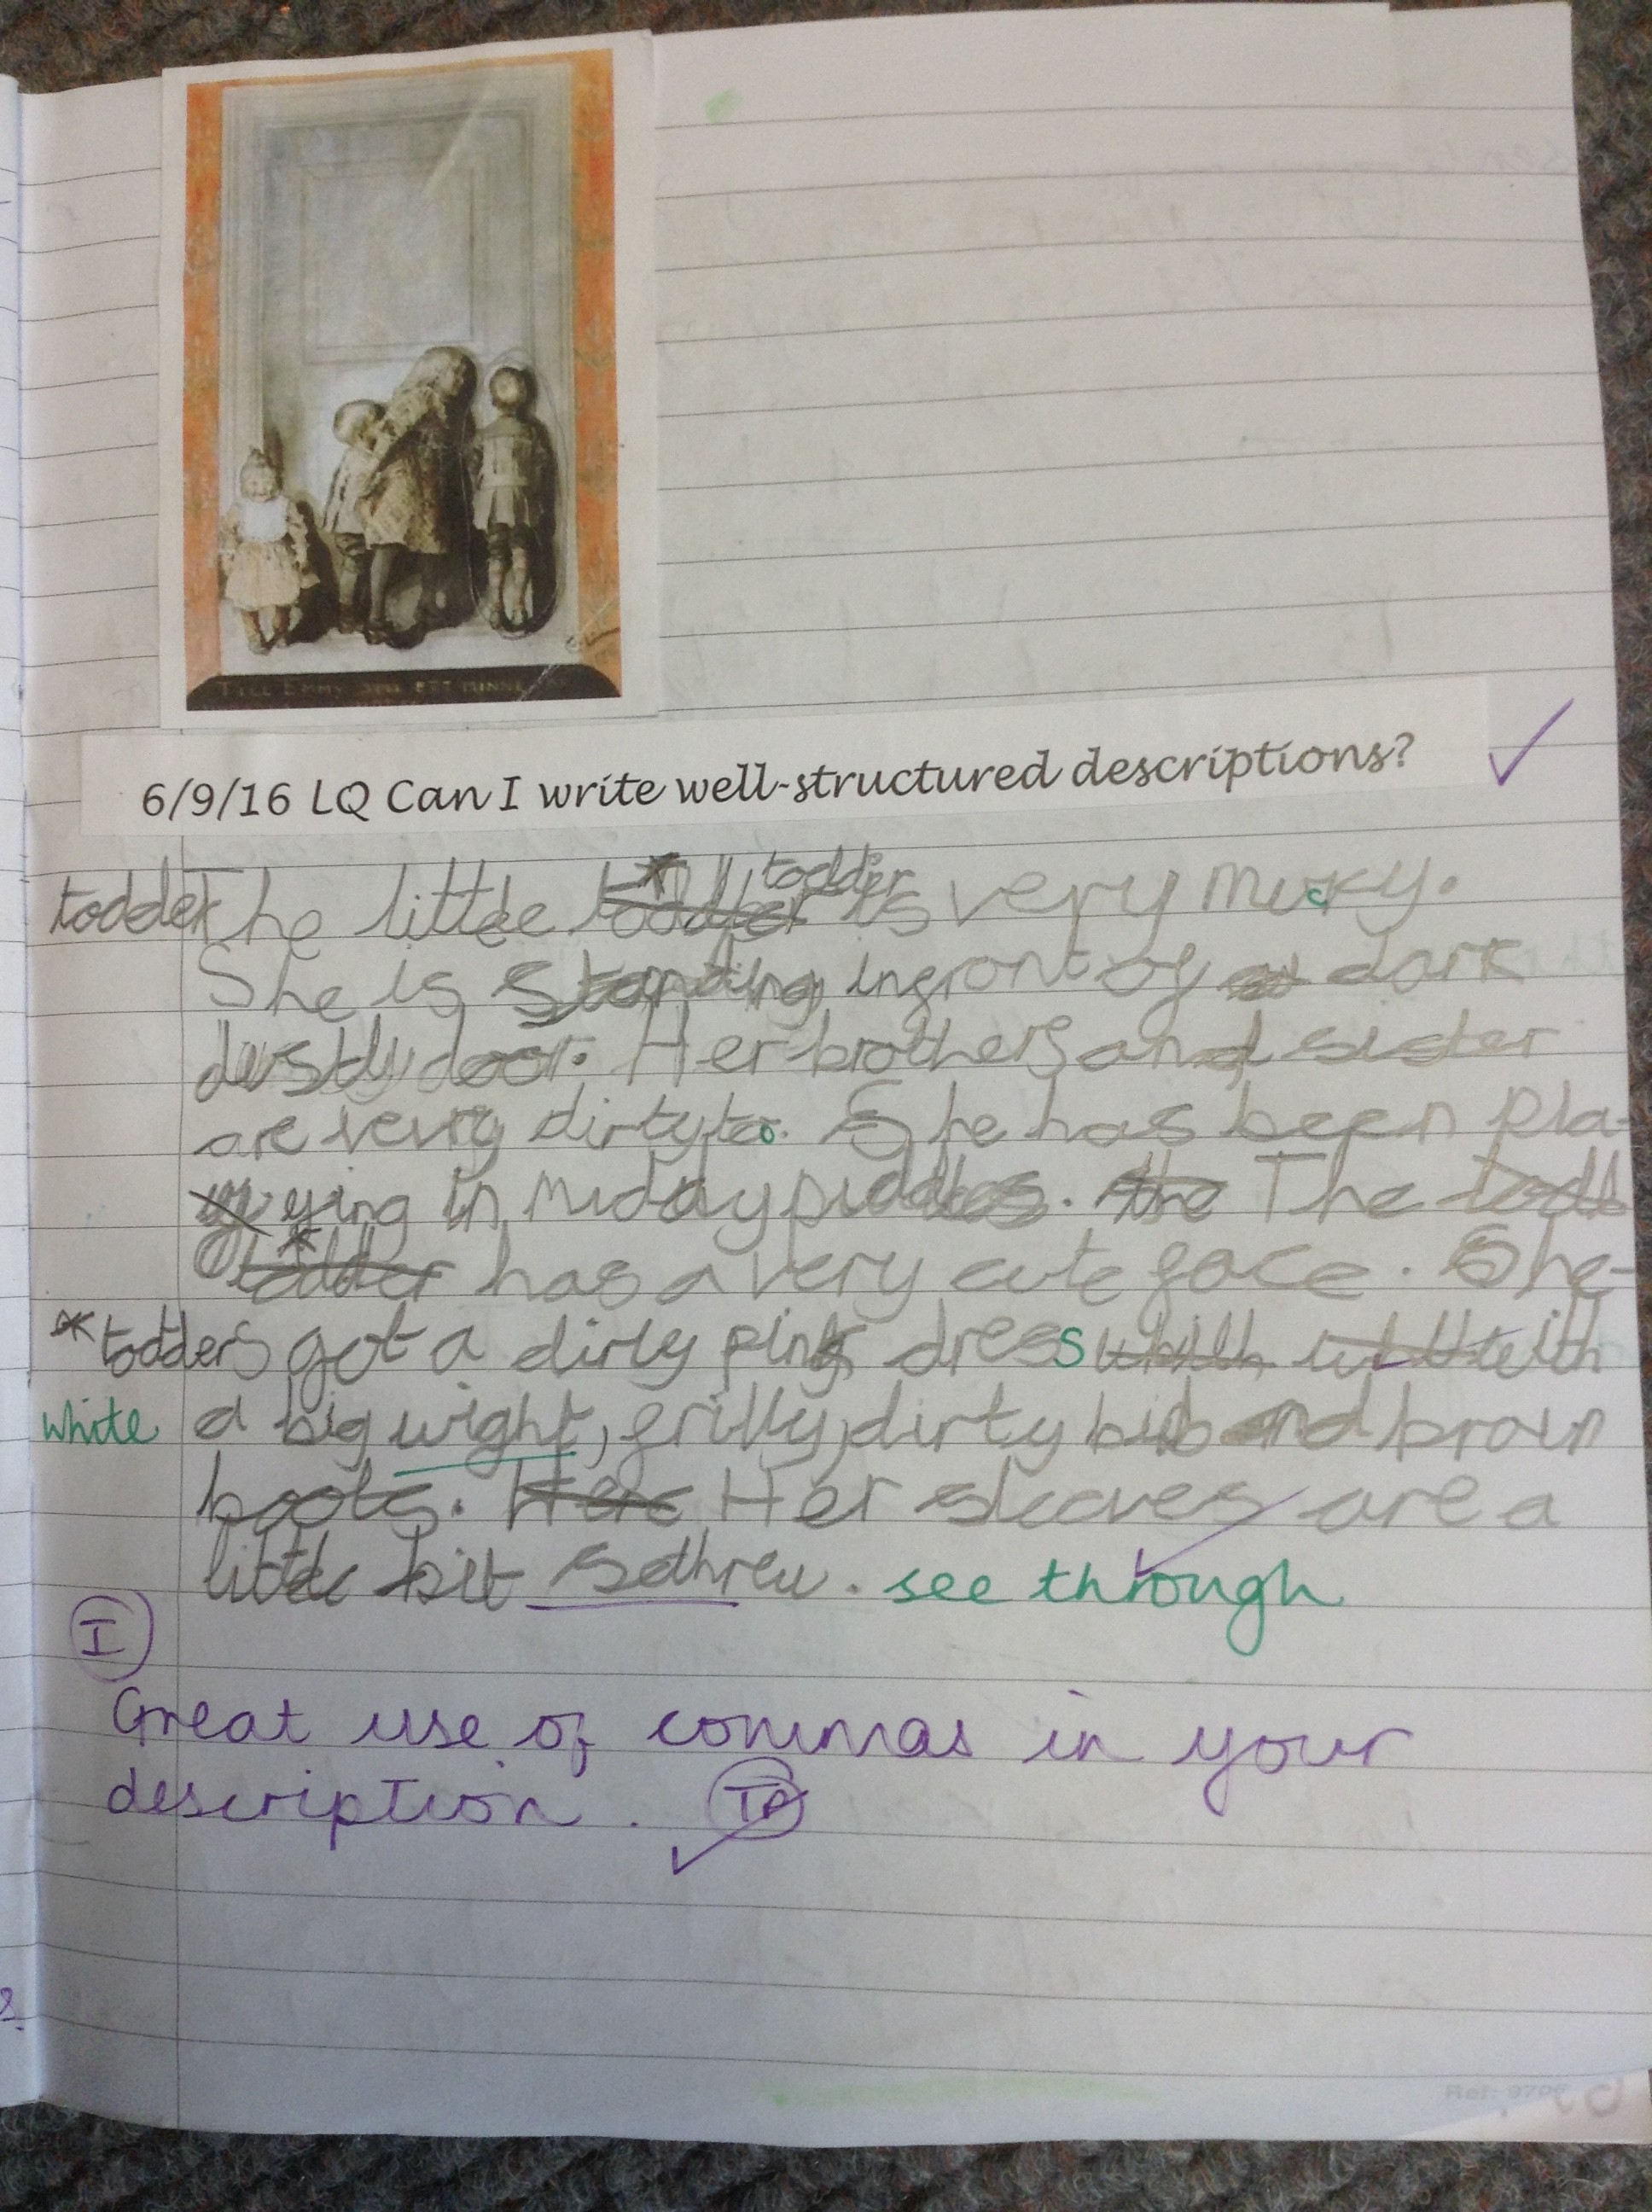 TILL EMMY
6/9/16 LQ Can I write well-structured descriptions?
todder The little todder is very mucky.
She is standing infront of a dark
dusty door. Her brothers and sister
are very dirty too. She has been pla-
ying in muday puddles. the The todd
todder has a very cute face. She
*todder s got a dirty pink dress with
white a big wight, frilly, dirty bib and brown
boots. Here Her sleeves are a
little bit sethrew. see through
I
Great use of commas in your
description. TA